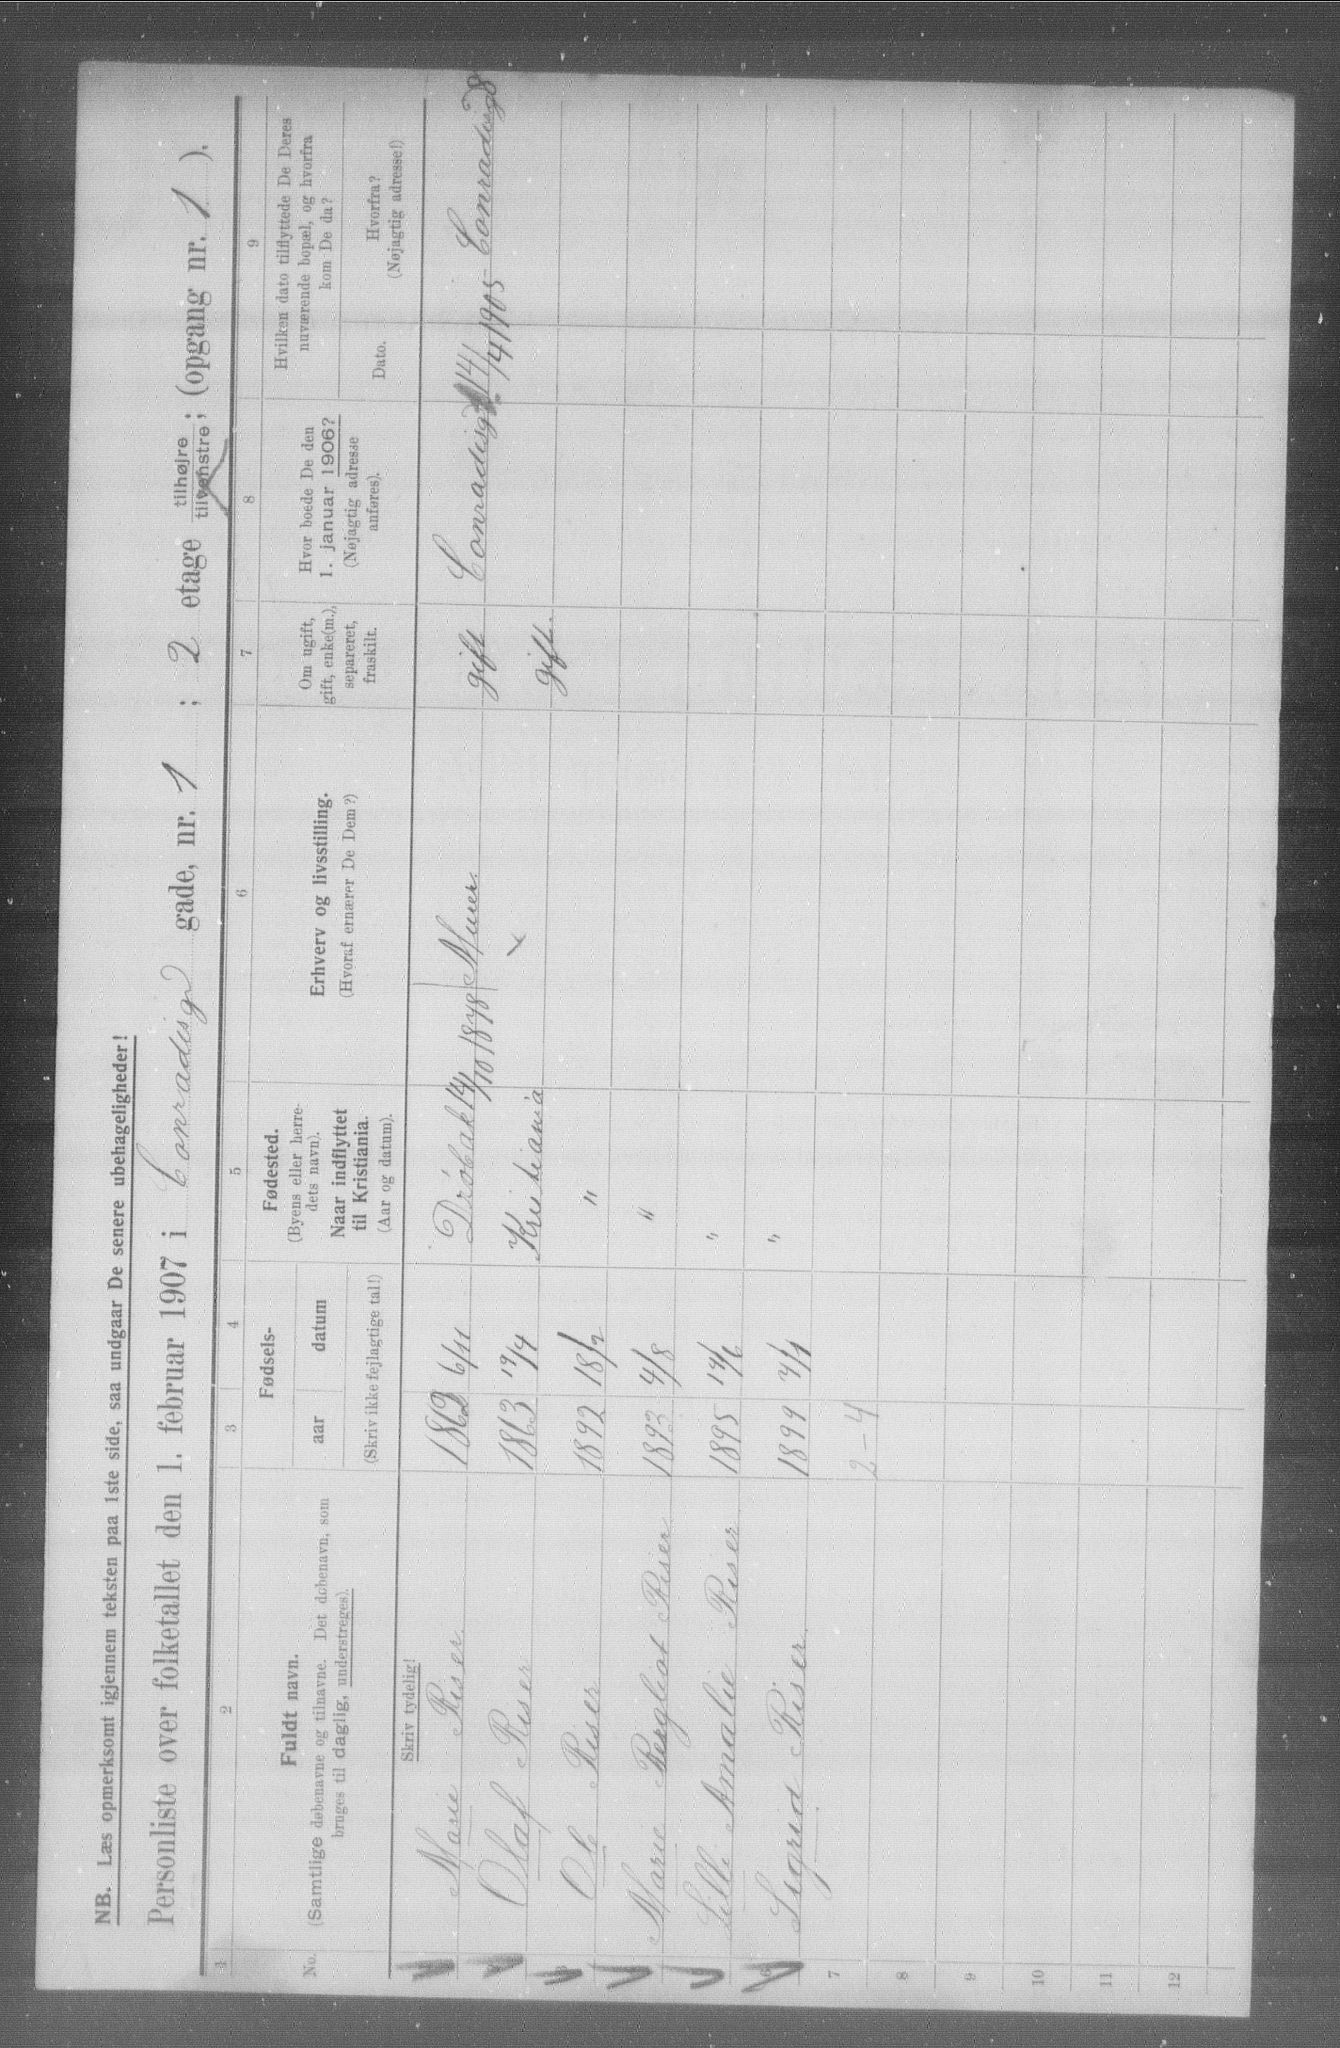 NB. Læs opmerksomt igjennem teksten paa 1ste side, saa undgaar De senere ubehageligheder!
Personliste over folketallet den 1. februar 1907 i Conradisg gade, nr. 1 ; 2 etage tilhøjre tilvenstre ; (opgang nr. 1 ).
1 2 3 4 5 6 7 8 9
No.
Fuldt navn.
(Samtlige døbenavne og tilnavne. Det døbenavn, som
bruges til daglig, understreges).
Fødsels-
aar datum
(Skriv ikke fejlagtige tal!)
Fødested.
(Byens eller herre-
dets navn).
Naar indflyttet
til Kristiania.
(Aar og datum).
Erhverv og livsstilling.
(Hvoraf ernærer De Dem?)
Om ugift,
gift, enke(m.),
separeret,
fraskilt.
Hvor boede De den
1. januar 1906?
(Nøjagtig adresse
anføres).
Hvilken dato tilflyttede De Deres
nuværende bopæl, og hvorfra
kom De da?
Dato.
Hvorfra?
(Nøjagtig adresse!)
Skriv tydelig!
Marie Riser 1862 6/11 Drøbak 14/10 1878 Murer. gift Conradisgd 14/4 1905 Conradisgd 8
Olaf Riser 1863 19/4 Kristiania gift.
3 Ole Riser 1892 18/2 "
Marie Bergliot Riser 1893 4/8 "
Lilli Amalie Riser 1895 14/6 "
6 Sigrid Riser 1899 "
7 2-4
8
9
10
11
12